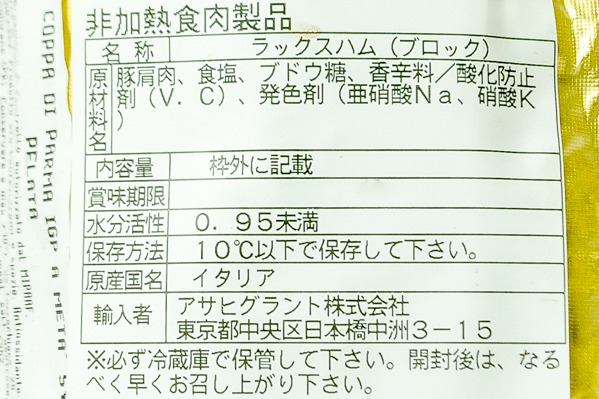 非加熱食肉製品
名称 ラックスハム（ブロック）
原材料名 豚肩肉、食塩、ブドウ糖、香辛料／酸化防止
剤（V．C）、発色剤（亜硝酸Na、硝酸K
）
内容量 枠外に記載
賞味期限
水分活性 0．95未満
保存方法 10℃以下で保存して下さい。
原産国名 イタリア
輸入者 アサヒグラント株式会社
東京都中央区日本橋中洲3－15
※必ず冷蔵庫で保管して下さい。開封後は、なる
べく早くお召し上がり下さい。
COPPA DI PARMA IGP A META' S
PELATA
autorizzato dal MIPAAF